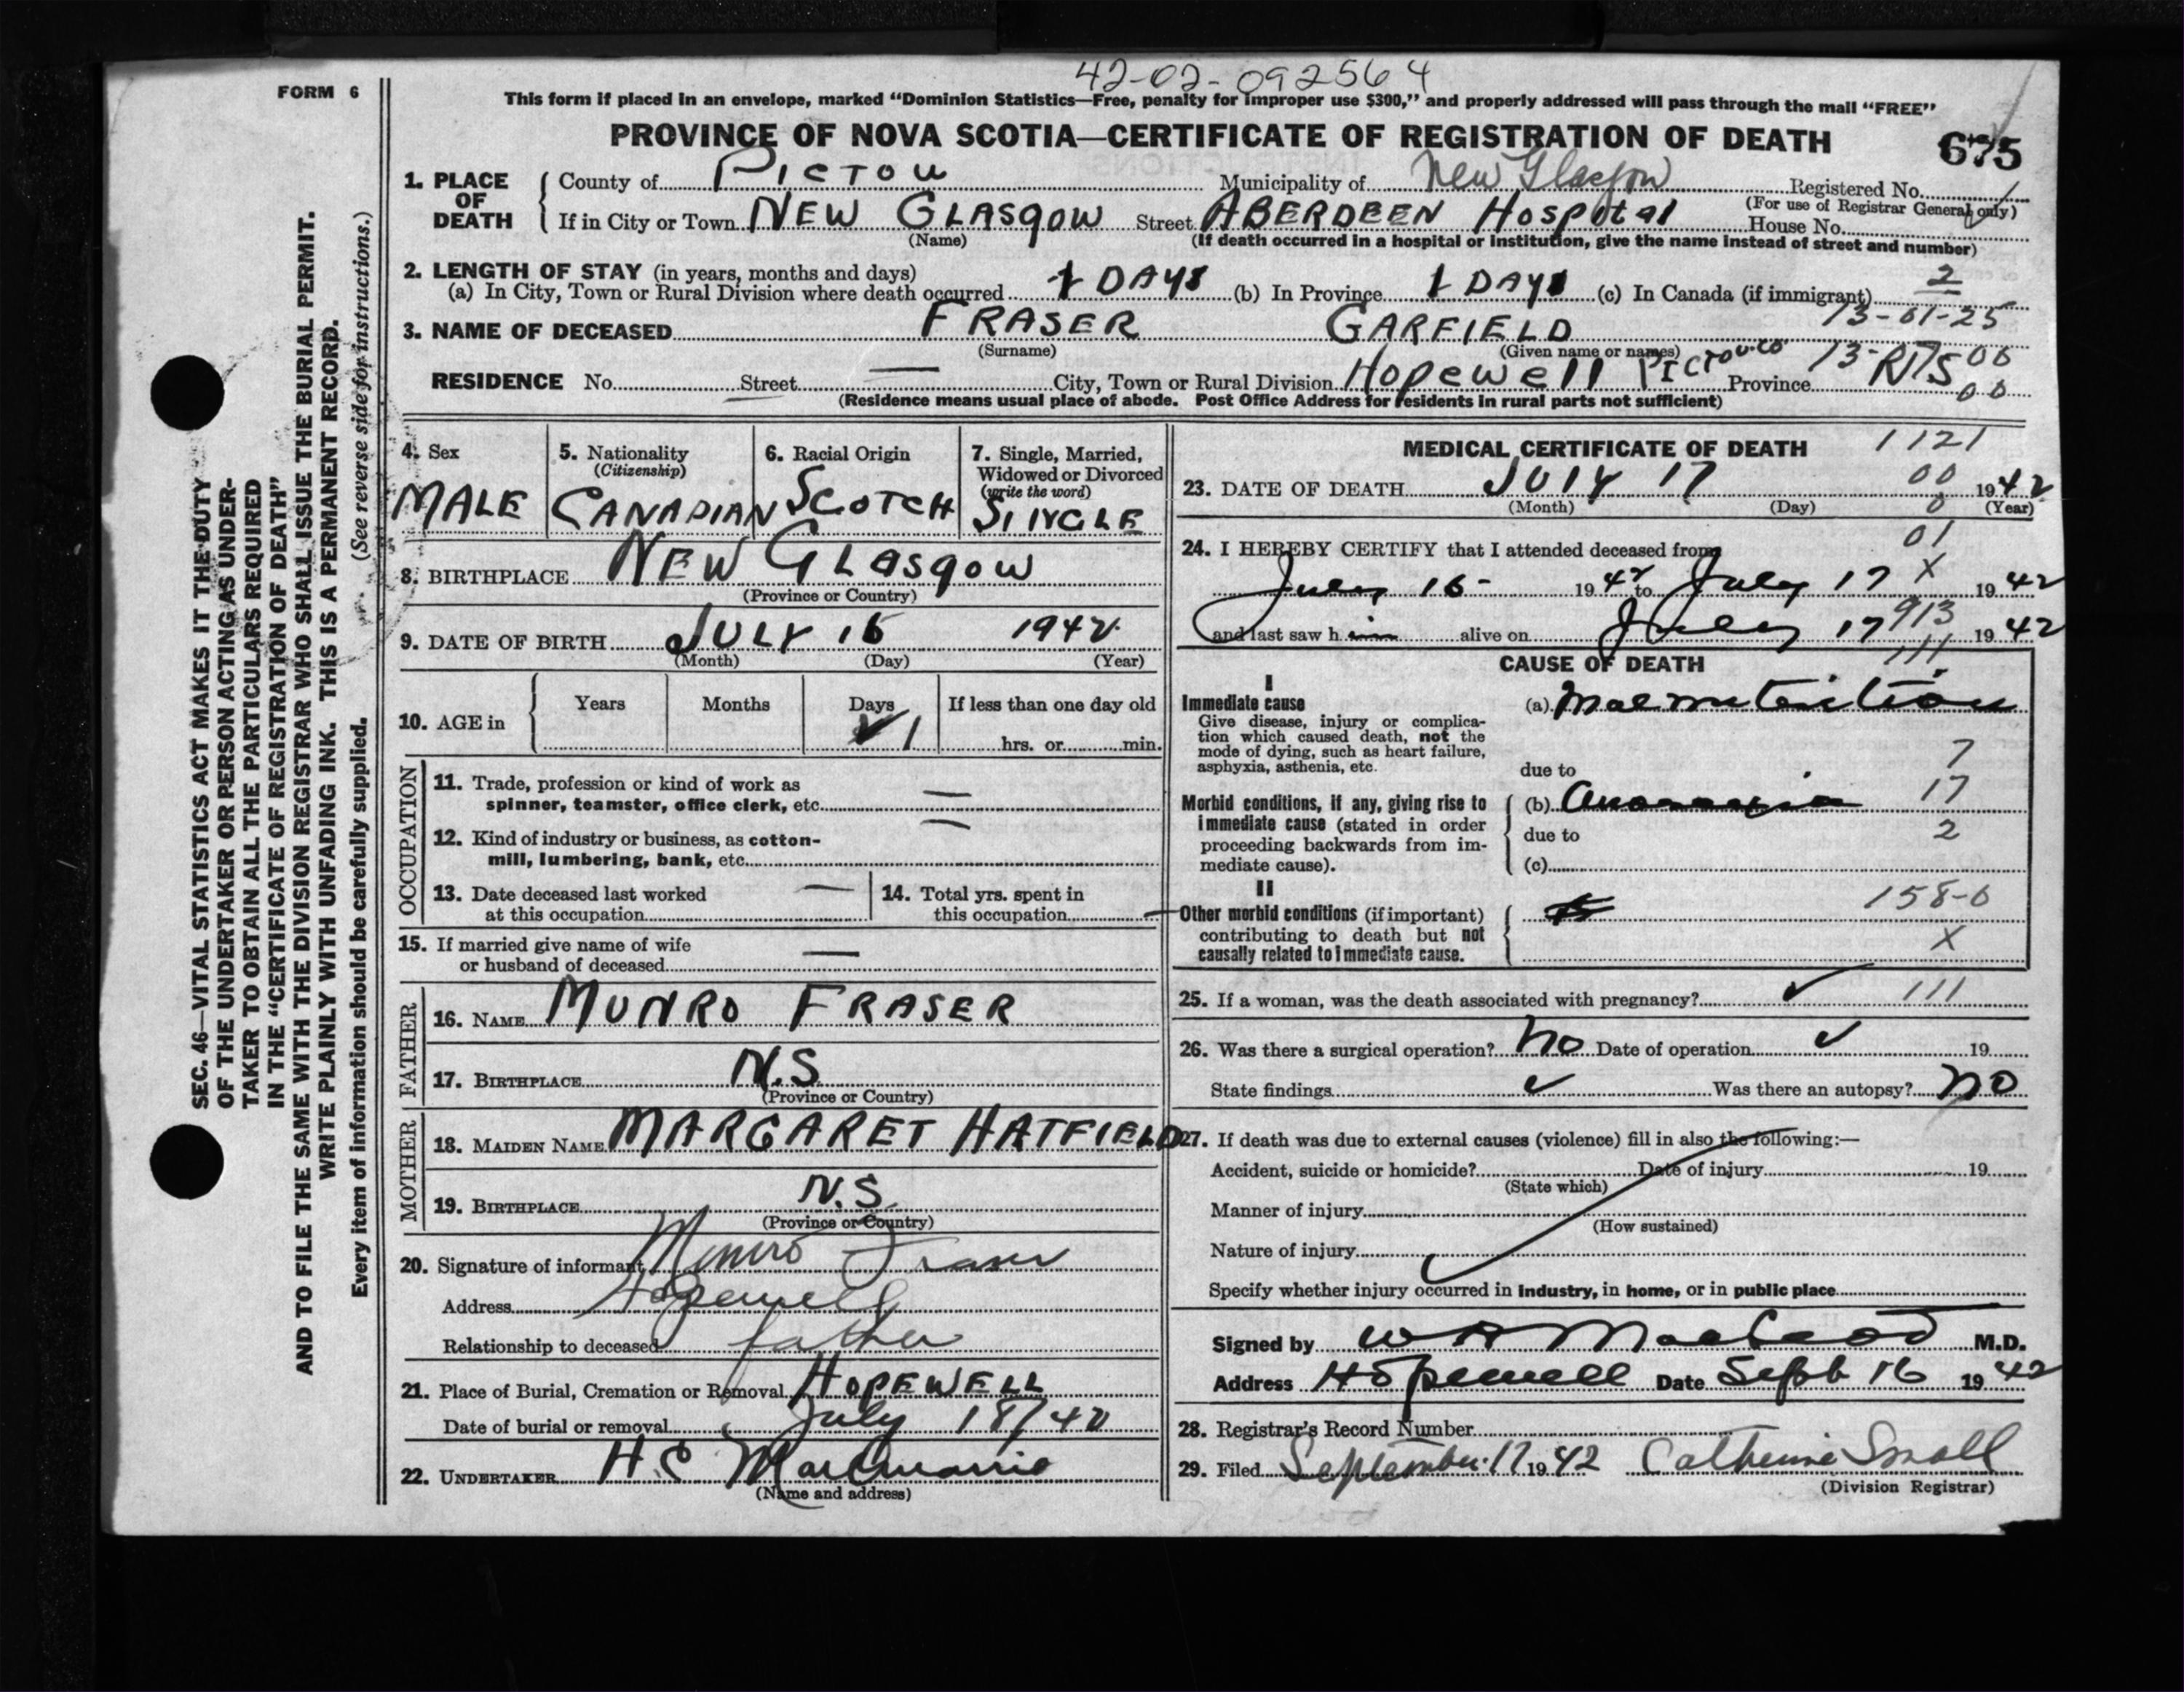 42-02-092564
FORM 6
This form if placed in an envelope, marked "Dominion Statistics—Free, penalty for improper use $300," and properly addressed will pass through the mail "FREE"
PROVINCE OF NOVA SCOTIA—CERTIFICATE OF REGISTRATION OF DEATH
675
1. PLACE OF DEATH
County of PICTOU Municipality of New Glasgow Registered No.
(For use of Registrar General only)
If in City or Town NEW GLASGOW Street ABERDEEN Hospital House No.
(Name) (If death occurred in a hospital or institution, give the name instead of street and number)
2. LENGTH OF STAY (in years, months and days)
(a) In City, Town or Rural Division where death occurred 1 DAY (b) In Province 1 DAY (c) In Canada (if immigrant) 2
13-01-25
3. NAME OF DECEASED FRASER GARFIELD
(Surname) (Given name or names)
RESIDENCE No. Street — City, Town or Rural Division Hopewell PICTOU CO Province 13- 00
00
(Residence means usual place of abode. Post Office Address for residents in rural parts not sufficient)
4. Sex
MALE
5. Nationality
(Citizenship)
CANADIAN
6. Racial Origin
SCOTCH
7. Single, Married,
Widowed or Divorced
(write the word)
SINGLE
8. BIRTHPLACE NEW GLASGOW
(Province or Country)
9. DATE OF BIRTH JULY 16 1942
(Month) (Day) (Year)
10. AGE in Years Months Days If less than one day old
1 hrs. or min.
OCCUPATION
11. Trade, profession or kind of work as
spinner, teamster, office clerk, etc. —
12. Kind of industry or business, as cotton-
mill, lumbering, bank, etc. —
13. Date deceased last worked
at this occupation —
14. Total yrs. spent in
this occupation —
15. If married give name of wife
or husband of deceased —
FATHER
16. NAME MUNRO FRASER
17. BIRTHPLACE N.S.
(Province or Country)
MOTHER
18. MAIDEN NAME MARGARET HATFIELD
19. BIRTHPLACE N.S.
(Province or Country)
20. Signature of informant Munro Fraser
Address Hopewell
Relationship to deceased father
21. Place of Burial, Cremation or Removal HOPEWELL
Date of burial or removal July 18/42
22. UNDERTAKER H C
(Name and address)
MEDICAL CERTIFICATE OF DEATH 1121
00
23. DATE OF DEATH JULY 17 1942
(Month) (Day) 0 (Year)
01
24. I HEREBY CERTIFY that I attended deceased from
July 16 1942 to July 17 X 1942
913
and last saw him alive on July 17 1942
111
CAUSE OF DEATH
I
Immediate cause
Give disease, injury or complica-
tion which caused death, not the
mode of dying, such as heart failure,
asphyxia, asthenia, etc.
(a) Malnutrition
7
due to
Morbid conditions, if any, giving rise to
immediate cause (stated in order
proceeding backwards from im-
mediate cause).
(b) 17
due to 2
(c)
II
Other morbid conditions (if important)
contributing to death but not
causally related to immediate cause.
158-0
X
25. If a woman, was the death associated with pregnancy? ✓ 111
26. Was there a surgical operation? No Date of operation ✓ 19
State findings ✓ Was there an autopsy? no
27. If death was due to external causes (violence) fill in also the following:—
Accident, suicide or homicide? Date of injury 19
(State which)
Manner of injury
(How sustained)
Nature of injury
Specify whether injury occurred in industry, in home, or in public place
Signed by W A MacLeod M.D.
Address Hopewell Date Sept 16 1942
28. Registrar's Record Number
29. Filed September 17 1942 Catherine Small
(Division Registrar)
SEC. 46—VITAL STATISTICS ACT MAKES IT THE DUTY
OF THE UNDERTAKER OR PERSON ACTING AS UNDER-
TAKER TO OBTAIN ALL THE PARTICULARS REQUIRED
IN THE "CERTIFICATE OF REGISTRATION OF DEATH"
AND TO FILE THE SAME WITH THE DIVISION REGISTRAR WHO SHALL ISSUE THE BURIAL PERMIT.
WRITE PLAINLY WITH UNFADING INK. THIS IS A PERMANENT RECORD.
Every item of information should be carefully supplied. (See reverse side for instructions.)